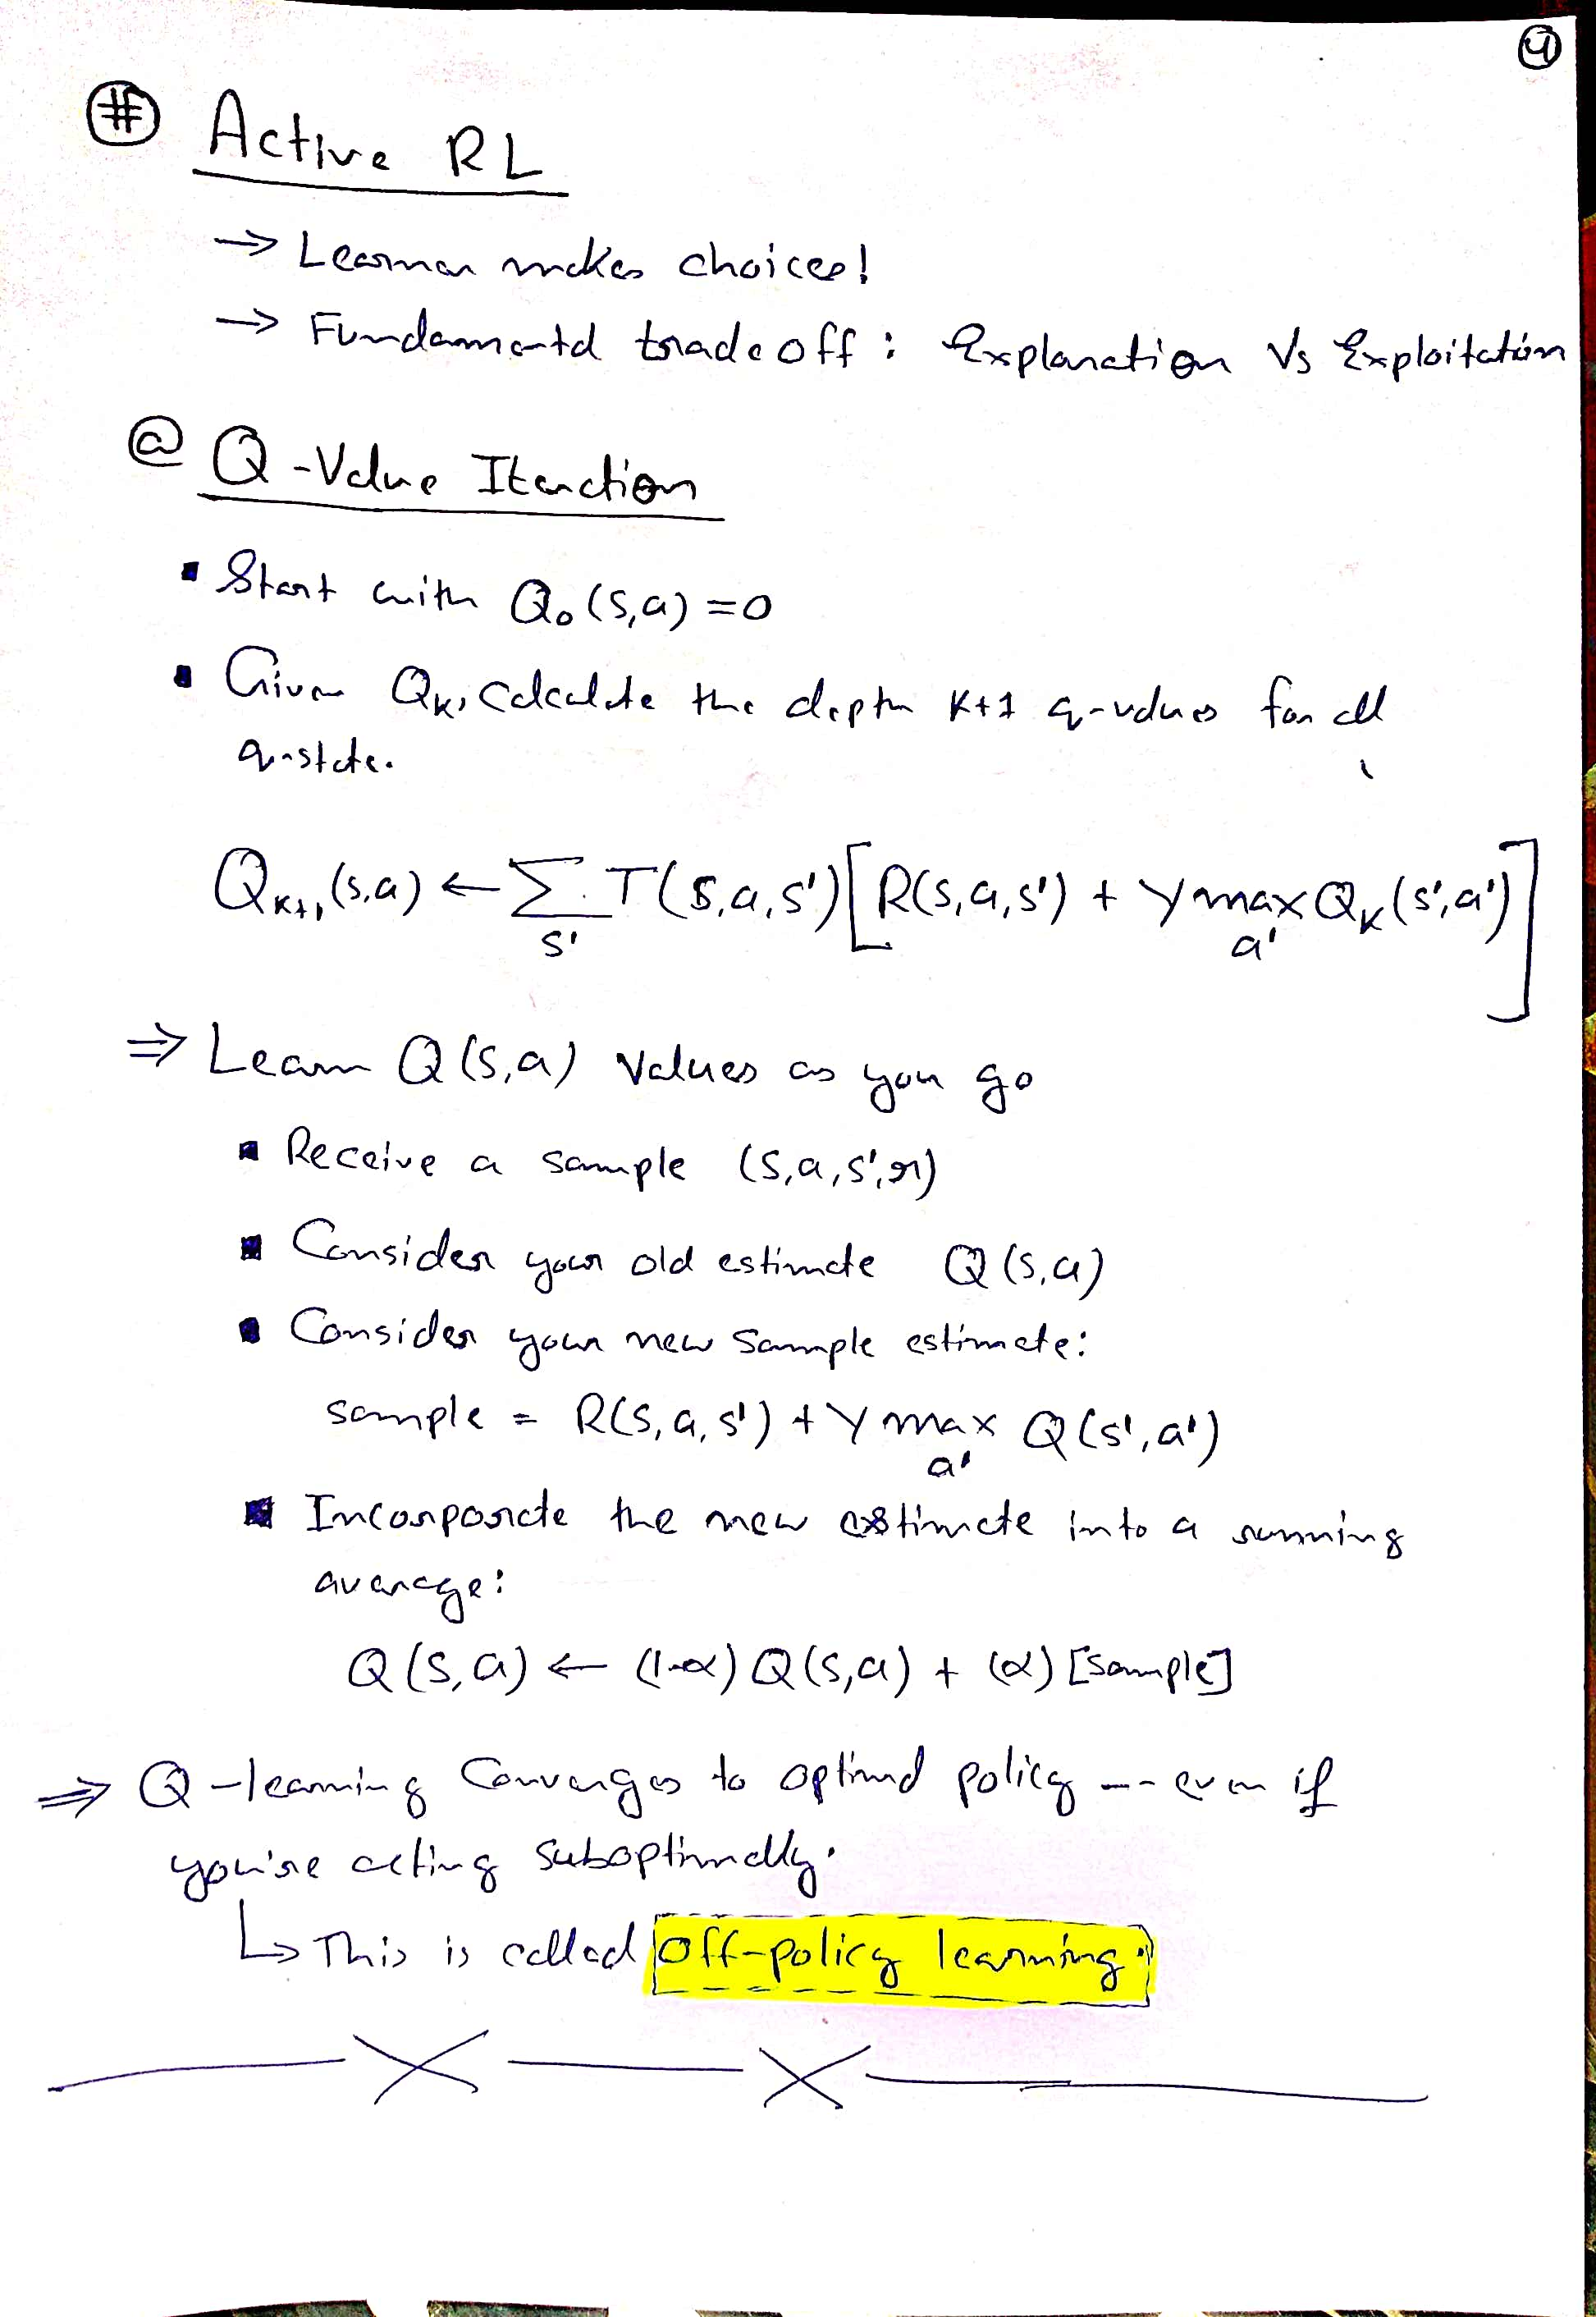 ④
# Active RL
→ Learner makes choices!
→ Fundamental tradeoff : Explanation Vs Exploitation
@ Q-Value Iteration
▪ Start with Q₀(s,a) = 0
▪ Given Qₖ, calculate the depth k+1 q-values for all
q-state.
Qₖ₊₁(s,a) ← Σ T(s,a,s') [R(s,a,s') + γ max Qₖ(s',a')]
s' a'
⇒ Learn Q(s,a) values as you go
▪ Receive a sample (s,a,s',r)
▪ Consider your old estimate Q(s,a)
▪ Consider your new sample estimate:
sample = R(s,a,s') + γ max Q(s',a')
a'
▪ Incorporate the new estimate into a running
average:
Q(s,a) ← (1-α) Q(s,a) + (α) [sample]
⇒ Q-learning Converges to optimal policy -- even if
you're acting suboptimally.
↳ This is called off-policy learning.